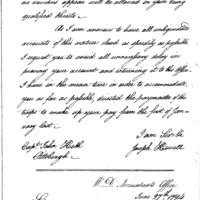 as vouchers appear will be allowed in your being
qualified thereto
As I am anxious to have all unliquidated
accounts of this nature closed as speedily as possible
I request you to avoid all unnecessary delay in
proving your account and returning it to this Office
I have in the mean time in order to accommodate
you as far as possible, directed the paymaster of the
troops to make up your pay from the first of Jan
uary last
I am Sir &c
Joseph Howell
Capt. John Heth
Pittsburgh
W. D. Accountants Office
June 27th 1794